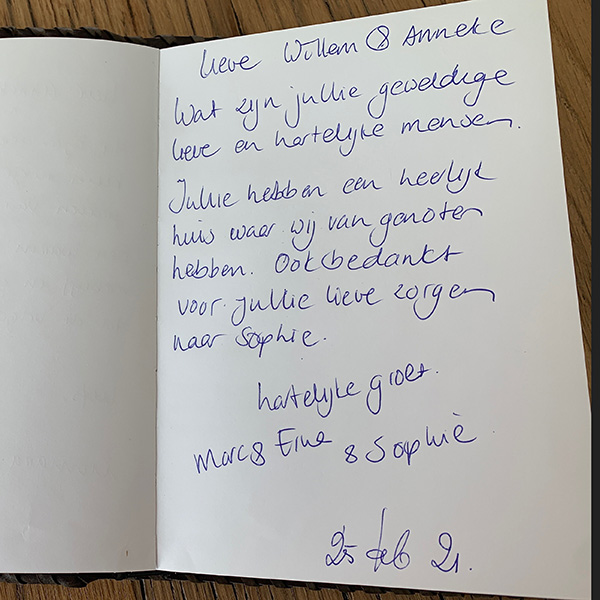 Lieve Willem & Anneke
Wat zijn jullie geweldige
lieve en hartelijke mensen.
Jullie hebben een heerlijk
huis waar wij van genoten
hebben. Ook bedankt
voor jullie lieve zorgen
naar Sophie.
hartelijke groet.
Marc & Erna & Sophie
25 feb 21.